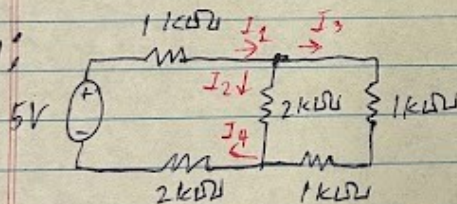 1 kΩ
I1
I3
I2
5V
+
-
2kΩ
1kΩ
I4
2kΩ
1kΩ